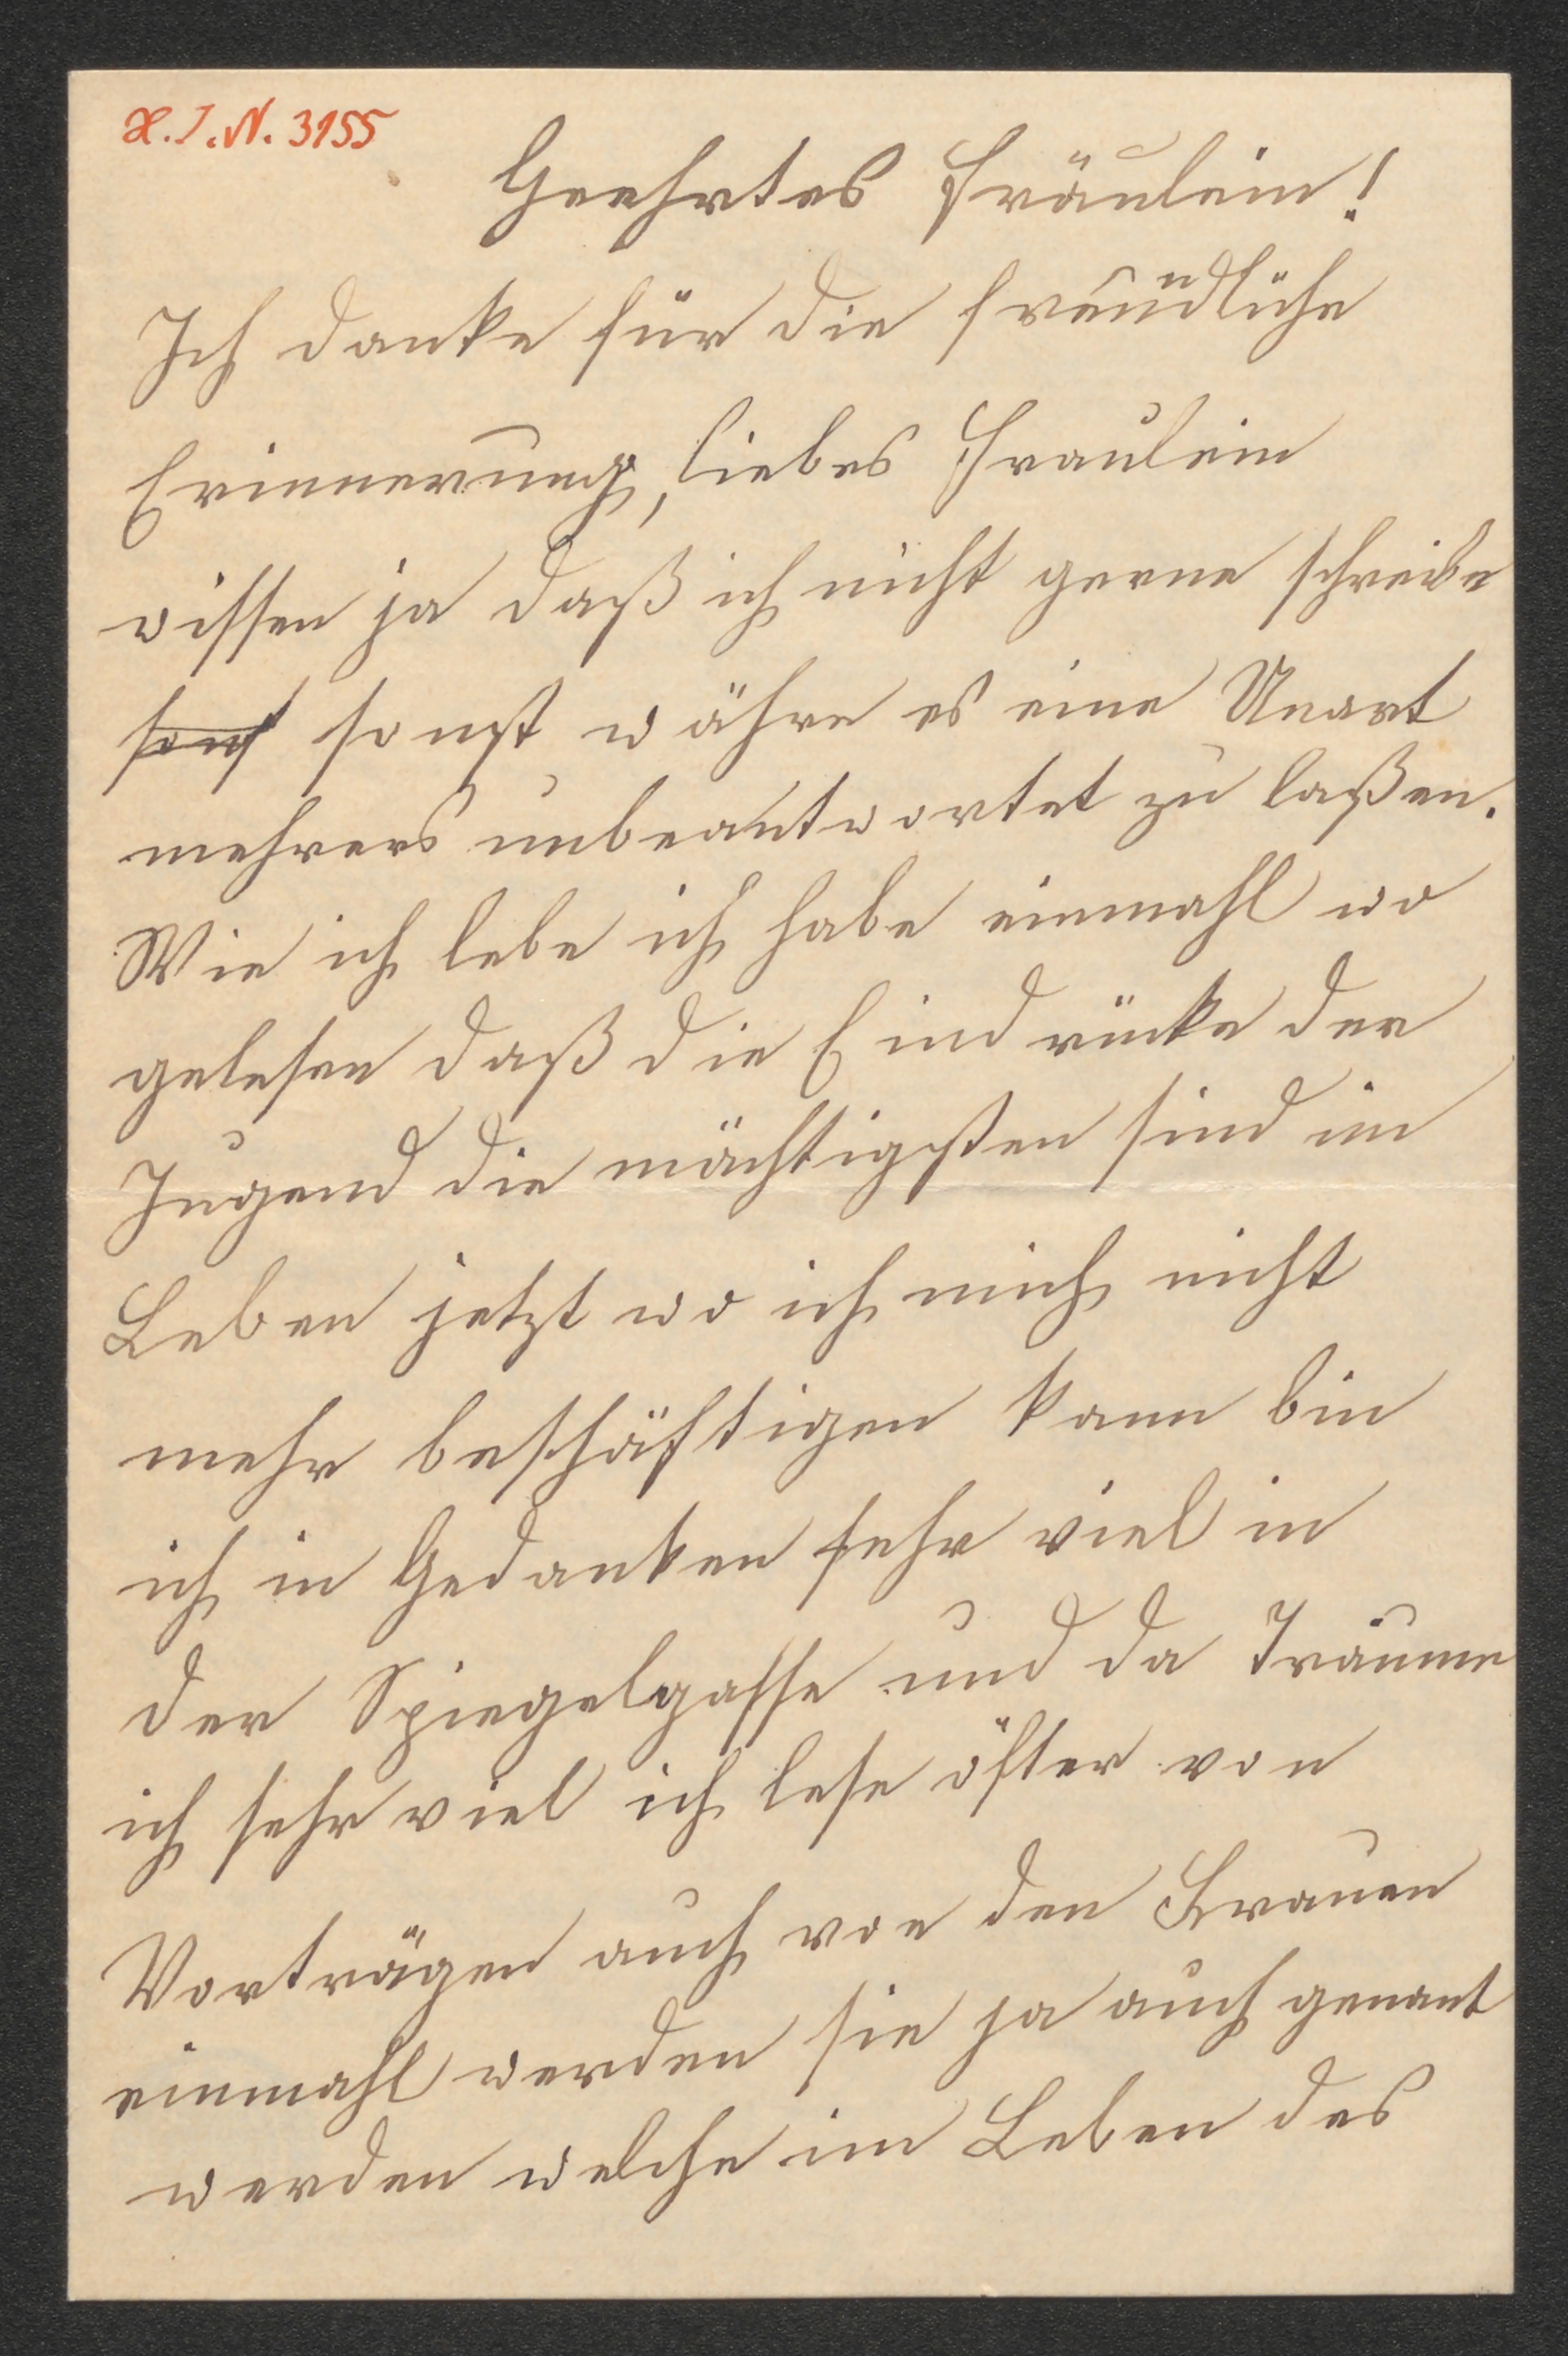 H.I.N. 3155
Geehrtes Fräulein!
Ich danke für die freundliche
Erinnerung, liebes Fraulein
wissen ja daß ich nicht gerne schreibe
sonst sonst währe es eine Unart
mehrers unbeantwortet zu laßen.
Wie ich lebe ich habe einmahl wo
gelesen daß die Eindrücke der
Jugend die mächtigsten sind im
Leben jetzt wo ich mich nicht
mehr beschäftigen kann bin
ich in Gedanken sehr viel in
der Spiegelgasse und da Träume
ich sehr viel ich lese öfter von
Vorträgen auch von den Frauen
einmahl werden sie ja auch genant
werden welche im Leben des